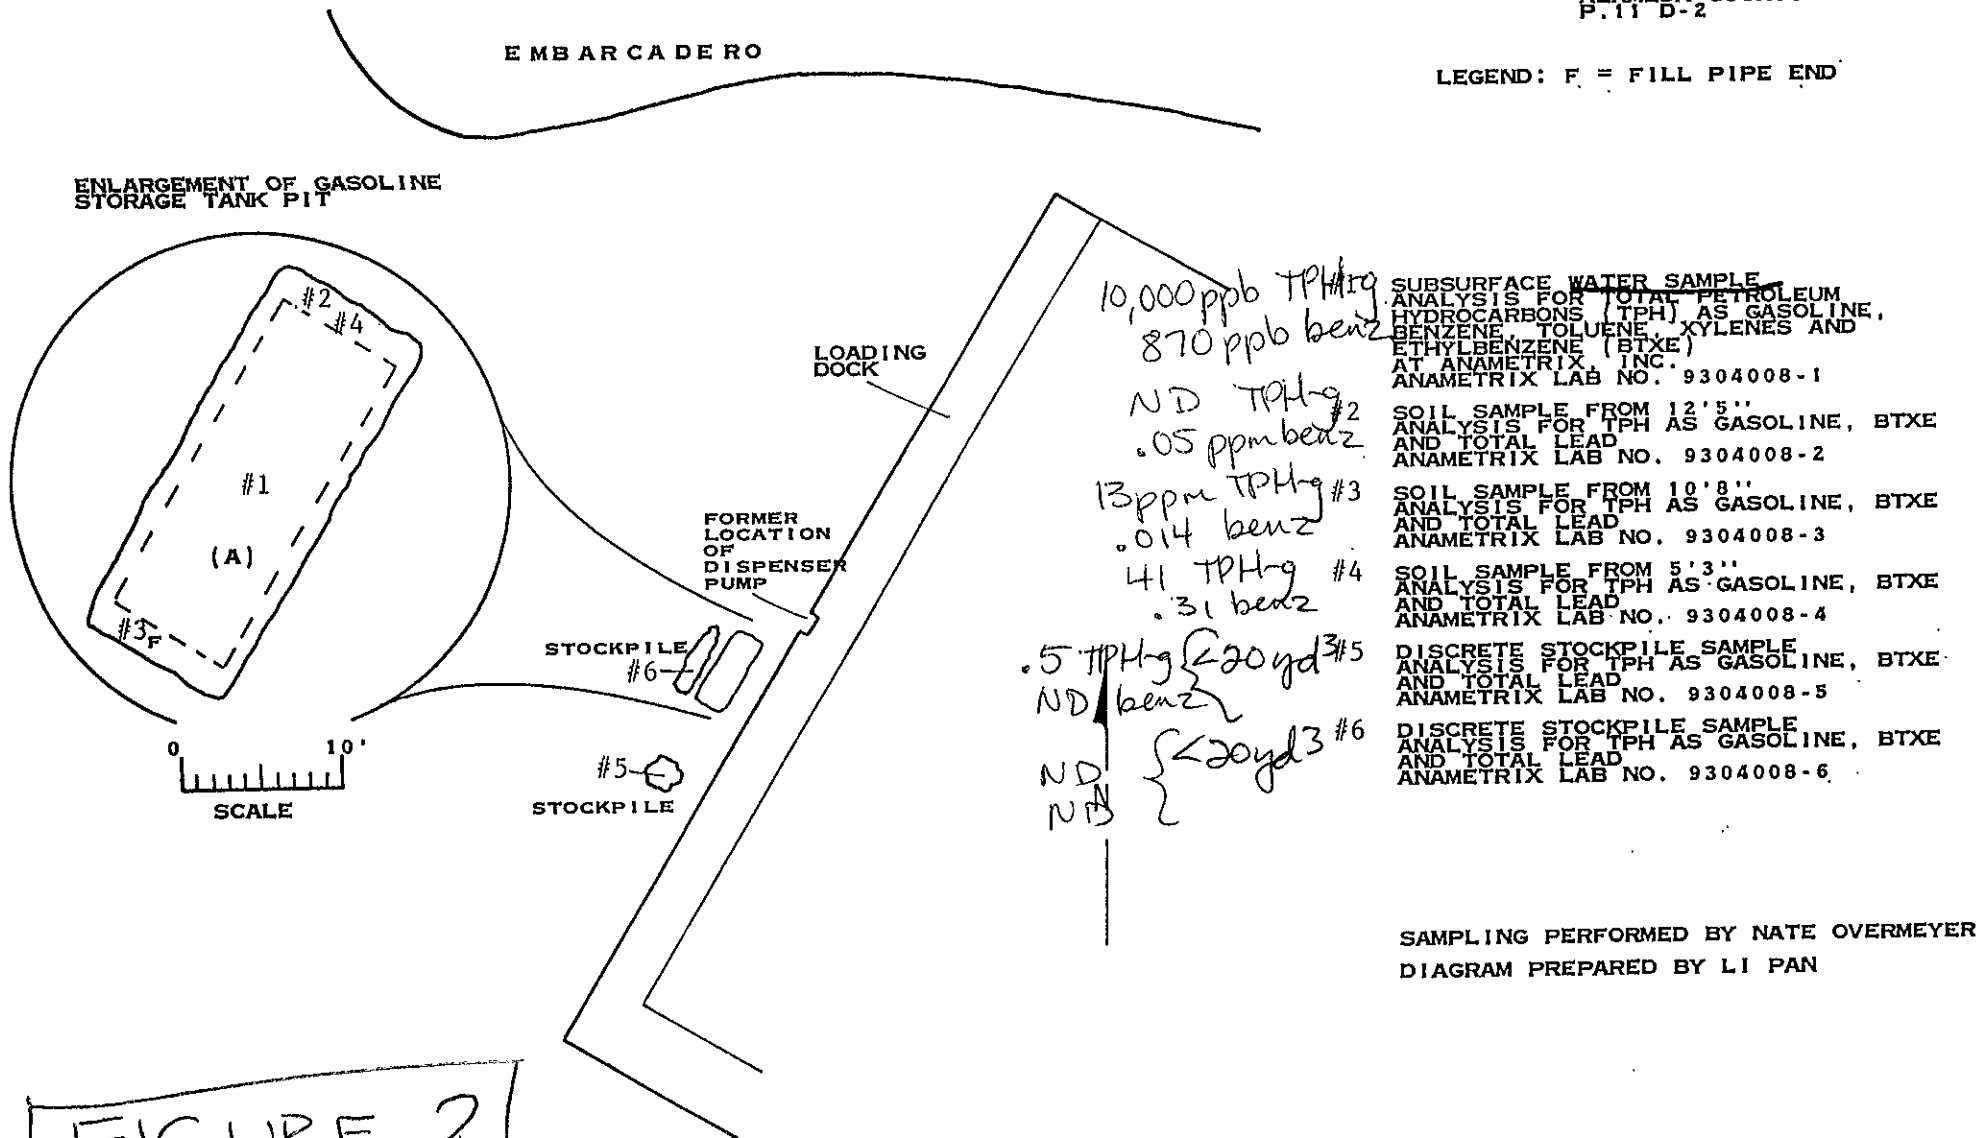 P.11 D-2
EMBARCADERO
LEGEND: F = FILL PIPE END
ENLARGEMENT OF GASOLINE
STORAGE TANK PIT
#2
#4
#1
(A)
#3
F
0 10'
SCALE
LOADING
DOCK
FORMER
LOCATION
OF
DISPENSER
PUMP
STOCKPILE
#6
#5
STOCKPILE
10,000 ppb TPH-g
870 ppb benz
SUBSURFACE WATER SAMPLE
ANALYSIS FOR TOTAL PETROLEUM
HYDROCARBONS (TPH) AS GASOLINE,
BENZENE, TOLUENE, XYLENES AND
ETHYLBENZENE (BTXE)
AT ANAMETRIX, INC.
ANAMETRIX LAB NO. 9304008-1
ND TPH-g
.05 ppm benz
#2
SOIL SAMPLE FROM 12'5''
ANALYSIS FOR TPH AS GASOLINE, BTXE
AND TOTAL LEAD
ANAMETRIX LAB NO. 9304008-2
13 ppm TPH-g
.014 benz
#3
SOIL SAMPLE FROM 10'8''
ANALYSIS FOR TPH AS GASOLINE, BTXE
AND TOTAL LEAD
ANAMETRIX LAB NO. 9304008-3
41 TPH-g
.31 benz
#4
SOIL SAMPLE FROM 5'3''
ANALYSIS FOR TPH AS GASOLINE, BTXE
AND TOTAL LEAD
ANAMETRIX LAB NO. 9304008-4
.5 TPH-g { <20 yd3
ND benz
#5
DISCRETE STOCKPILE SAMPLE
ANALYSIS FOR TPH AS GASOLINE, BTXE
AND TOTAL LEAD
ANAMETRIX LAB NO. 9304008-5
ND { <20 yd3
ND
#6
DISCRETE STOCKPILE SAMPLE
ANALYSIS FOR TPH AS GASOLINE, BTXE
AND TOTAL LEAD
ANAMETRIX LAB NO. 9304008-6
SAMPLING PERFORMED BY NATE OVERMEYER
DIAGRAM PREPARED BY LI PAN
FIGURE 2